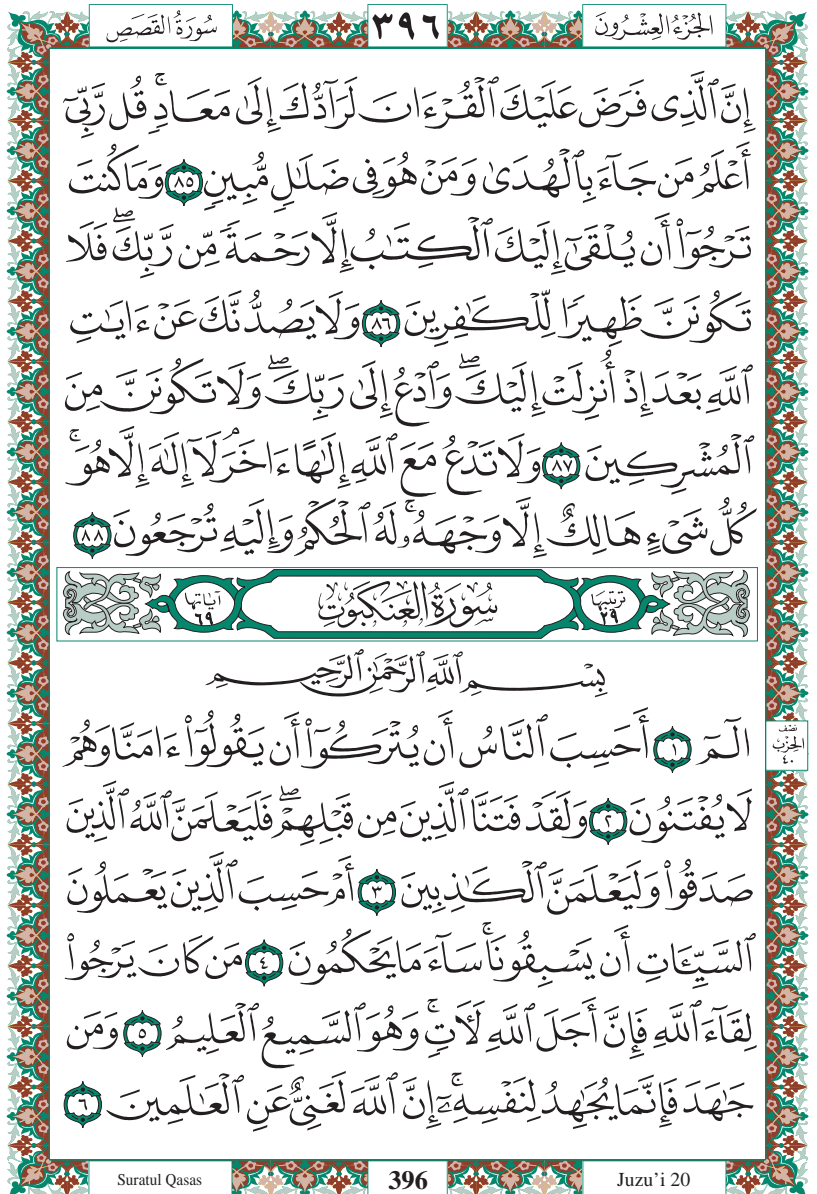 الجُزْءُ العِشْرُونَ ٣٩٦ سُورَةُ القَصَصِ
إِنَّ ٱلَّذِى فَرَضَ عَلَيْكَ ٱلْقُرْءَانَ لَرَآدُّكَ إِلَىٰ مَعَادٍۚ قُل رَّبِّىٓ
أَعْلَمُ مَن جَآءَ بِٱلْهُدَىٰ وَمَنْ هُوَ فِى ضَلَٰلٍ مُّبِينٍ ٨٥ وَمَا كُنتَ
تَرْجُوٓا۟ أَن يُلْقَىٰٓ إِلَيْكَ ٱلْكِتَٰبُ إِلَّا رَحْمَةً مِّن رَّبِّكَۖ فَلَا
تَكُونَنَّ ظَهِيرًا لِّلْكَٰفِرِينَ ٨٦ وَلَا يَصُدُّنَّكَ عَنْ ءَايَٰتِ
ٱللَّهِ بَعْدَ إِذْ أُنزِلَتْ إِلَيْكَۖ وَٱدْعُ إِلَىٰ رَبِّكَۖ وَلَا تَكُونَنَّ مِنَ
ٱلْمُشْرِكِينَ ٨٧ وَلَا تَدْعُ مَعَ ٱللَّهِ إِلَٰهًا ءَاخَرَۘ لَآ إِلَٰهَ إِلَّا هُوَۚ
كُلُّ شَىْءٍ هَالِكٌ إِلَّا وَجْهَهُۥۚ لَهُ ٱلْحُكْمُ وَإِلَيْهِ تُرْجَعُونَ ٨٨
ترتيبها ٢٩ سُورَةُ العَنكَبُوتِ آياتها ٦٩
بِسْمِ ٱللَّهِ ٱلرَّحْمَٰنِ ٱلرَّحِيمِ
الٓمٓ ١ أَحَسِبَ ٱلنَّاسُ أَن يُتْرَكُوٓا۟ أَن يَقُولُوٓا۟ ءَامَنَّا وَهُمْ
نصف الحِزْب ٤٠
لَا يُفْتَنُونَ ٢ وَلَقَدْ فَتَنَّا ٱلَّذِينَ مِن قَبْلِهِمْۖ فَلَيَعْلَمَنَّ ٱللَّهُ ٱلَّذِينَ
صَدَقُوا۟ وَلَيَعْلَمَنَّ ٱلْكَٰذِبِينَ ٣ أَمْ حَسِبَ ٱلَّذِينَ يَعْمَلُونَ
ٱلسَّيِّـَٔاتِ أَن يَسْبِقُونَاۚ سَآءَ مَا يَحْكُمُونَ ٤ مَن كَانَ يَرْجُوا۟
لِقَآءَ ٱللَّهِ فَإِنَّ أَجَلَ ٱللَّهِ لَـَٔاتٍۚ وَهُوَ ٱلسَّمِيعُ ٱلْعَلِيمُ ٥ وَمَن
جَٰهَدَ فَإِنَّمَا يُجَٰهِدُ لِنَفْسِهِۦٓۚ إِنَّ ٱللَّهَ لَغَنِىٌّ عَنِ ٱلْعَٰلَمِينَ ٦
Suratul Qasas 396 Juzu'i 20